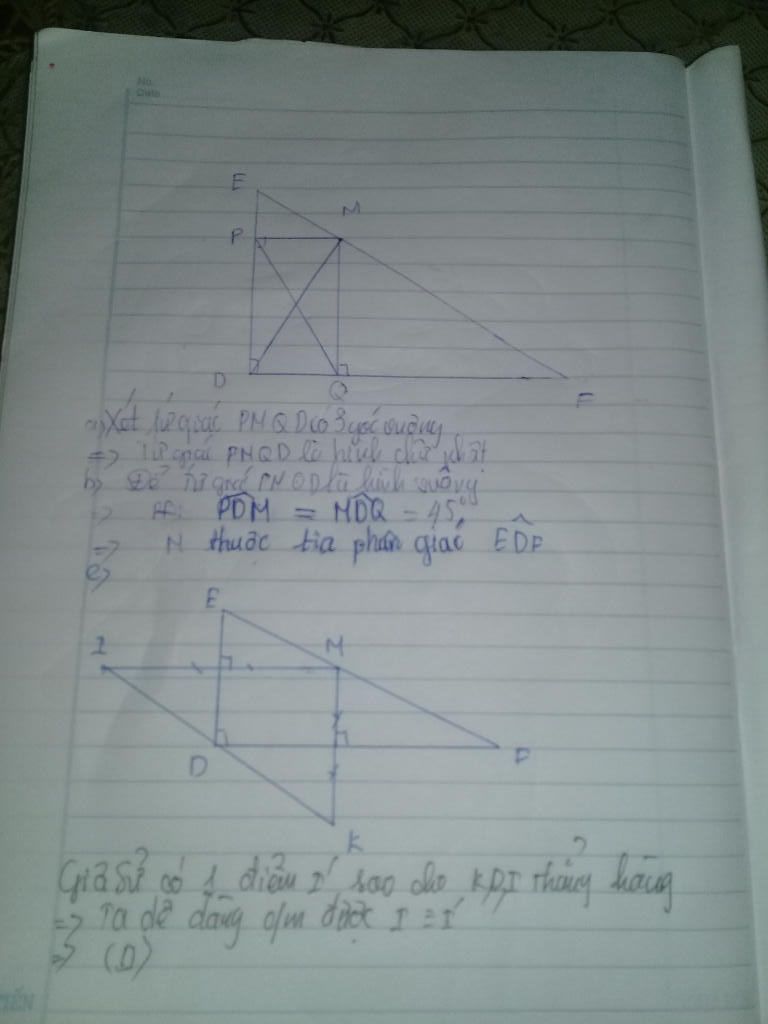 No.
Date
E
M
P
D
Q
F
a) Xét tứ giác PMQD có 3 góc vuông
=> Tứ giác PMQD là hình chữ nhật
b) Để tứ giác PMQD là hình vuông
=> PDM = MDQ = 45°
=> M thuộc tia phân giác EDF
c)
E
I
M
D
F
K
Giả sử có 1 điểm I' sao cho K,D,I' thẳng hàng
=> Ta dễ dàng c/m được I ≡ I'
=> (D)
TIẾN